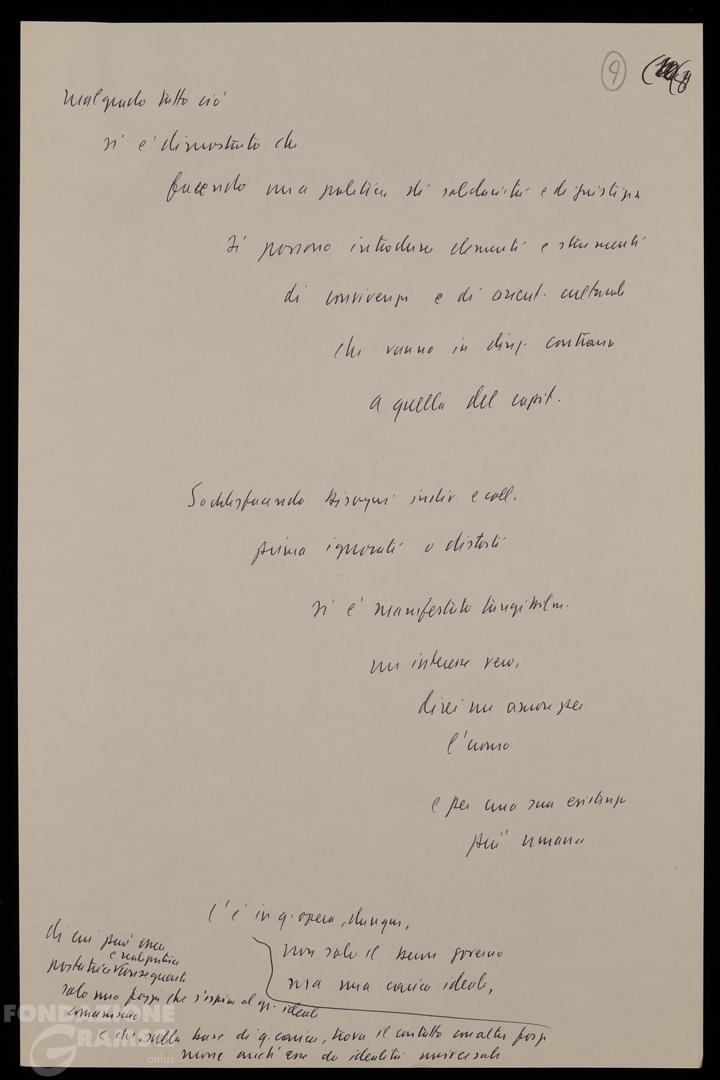 9
malgrado tutto ciò
si è dimostrato che
facendo una politica di solidarietà e di giustizia
si possono introdurre elementi e strumenti
di convivenza e di orient. culturale
che vanno in direz. contraria
a quella del capit.
Soddisfacendo bisogni indiv. e coll.
prima ignorati o distorti
si è manifestato tangibilm.
un interesse vero,
direi un amore per
l'uomo
e per una sua esistenza
più umana
C'è in q. opera, dunque,
non solo il buon governo
ma una carica ideale,
di cui può esser
e realizzatrice
portatrice conseguente
solo una forza che s'ispira al q. ideali
comunismo
e che, sulla base di q. carica, trova il contatto con altre forze
mosse anch'esse da idealità universali
FONDAZIONE
GRAMSCI
onlus